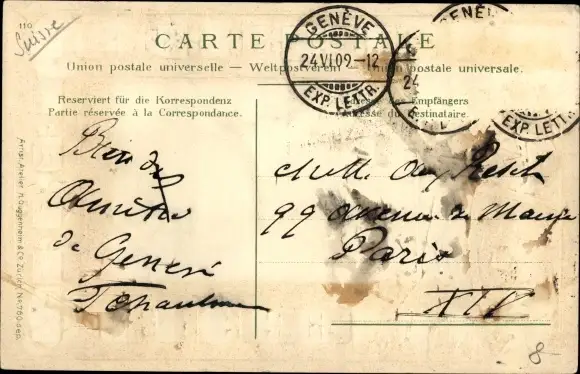 110
Suisse
CARTE POSTALE
Union postale universelle — Weltpostverein — Union postale universale.
GENÈVE
24 VI 09-12
EXP. LETTR.
GENÈVE
24
EXP. LETTR.
Reserviert für die Korrespondenz
Partie réservée à la Correspondance.
des Empfängers
Adresse du Destinataire.
Bien des
de Genève
99 Avenue du Maine
Paris
XIV
Artist. Atelier H. Guggenheim & Co. Zürich No. 760 dep.
8-